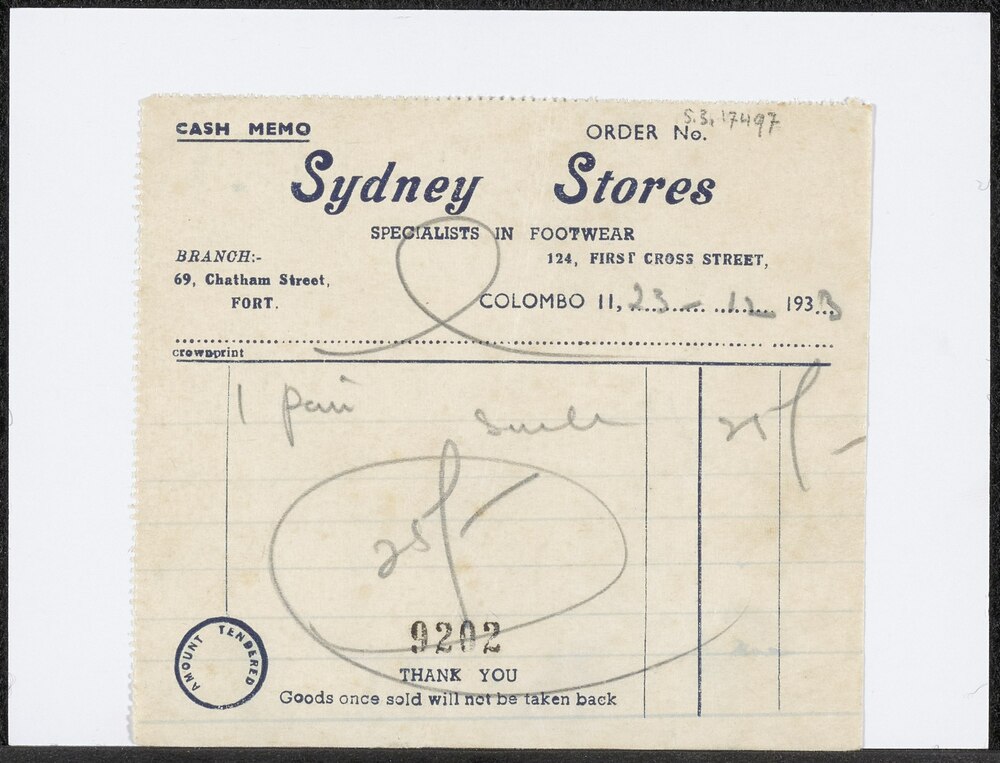 CASH MEMO
ORDER No.
S.3.17497
Sydney Stores
SPECIALISTS IN FOOTWEAR
BRANCH:-
69, Chatham Street,
FORT.
124, FIRST CROSS STREET,
COLOMBO 11, 23 - 12 1933
crownprint
1 pair 25/-
25/-
9202
AMOUNT TENDERED
THANK YOU
Goods once sold will not be taken back